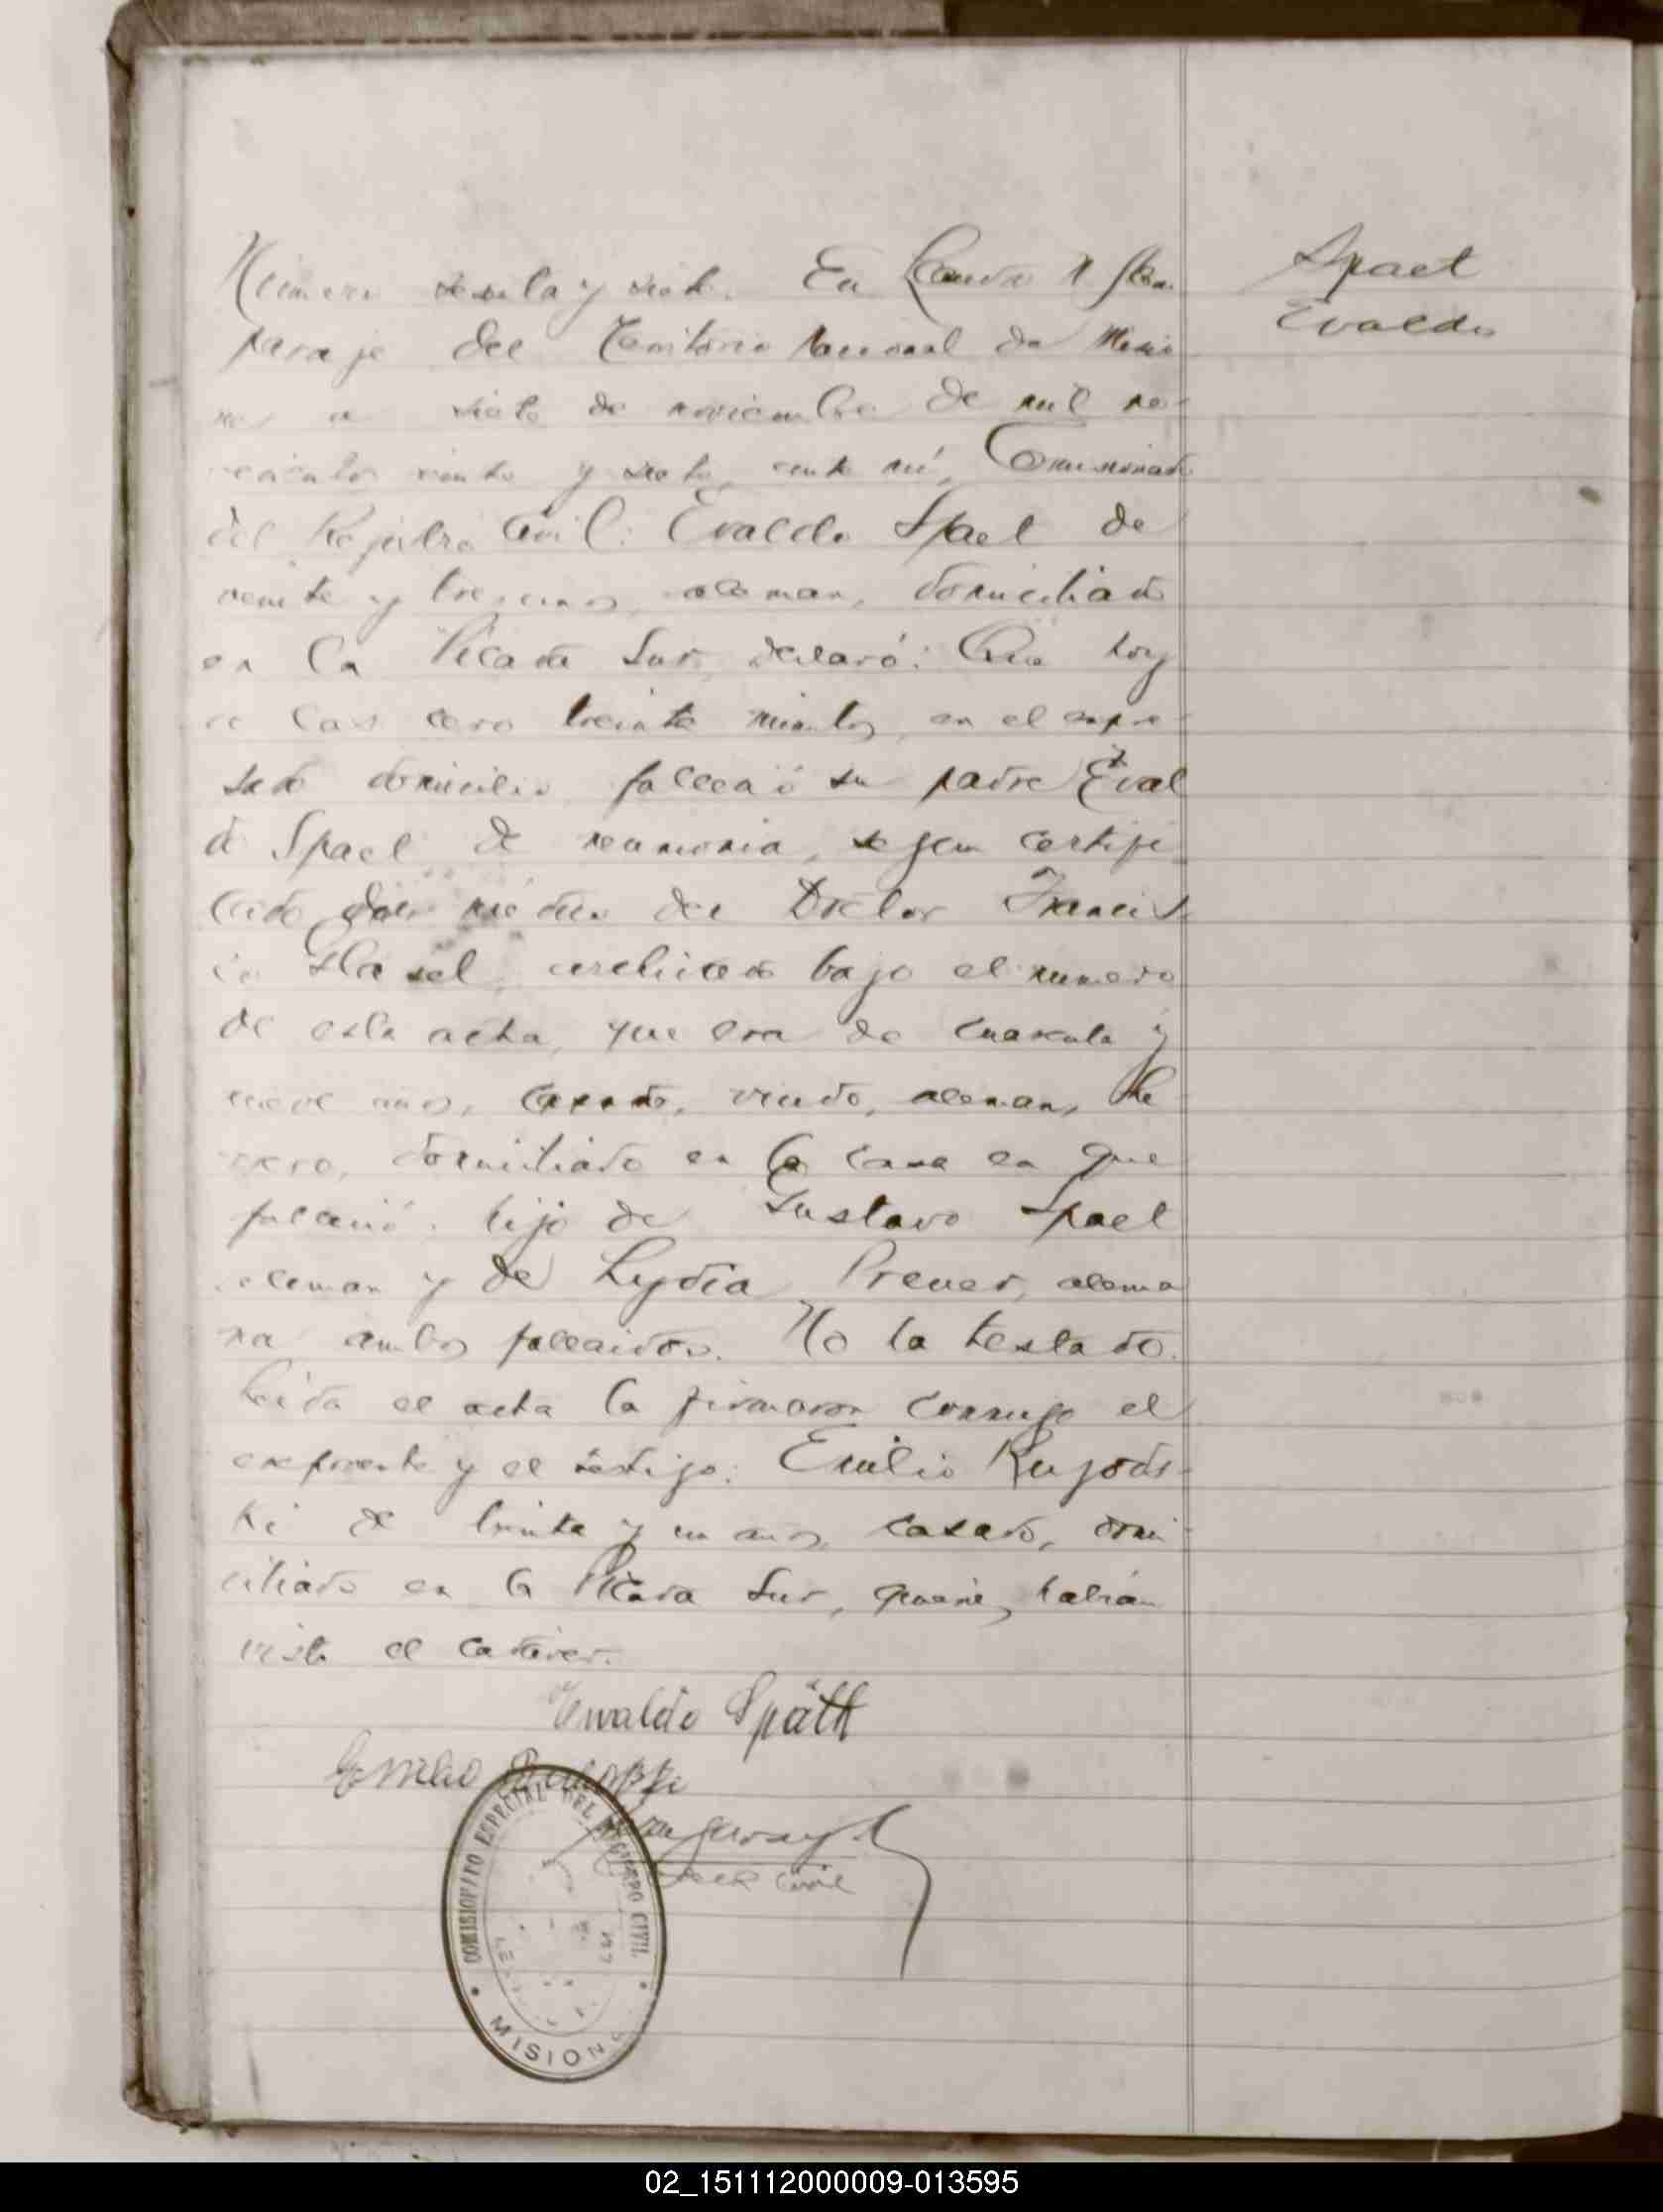 Spaet
Evaldo
Número sesenta y siete. En Leandro N Alem
paraje del Territorio Nacional de Misio
nes a siete de noviembre de mil no-
vecientos veinte y siete, ante mí, Comisionado
del Rejistro Civil: Evaldo Spaet de
veinte y tres años, aleman, domiciliado
en la Picada Sur, declaró: Que hoy
a las cero treinta minutos, en el expre-
sado domicilio falleció su padre Eval
do Spaet de neumonia, segun certifi
cado del médico del Doctor Francis
co archivado bajo el numero
de esta acta, que era de cuarenta y
nueve años, casado, viudo, aleman,
domiciliado en la casa en que
falleció. hijo de Gustavo Spaet
aleman y de Lydia Preuer, alema
na ambos fallecidos. No ha testado.
Leida el acta la firmaron conmigo el
exponente y el testigo: Emilio
ki de treinta y un años, casado, domi
ciliado en la Picada Sur, quienes habian
visto el cadáver.
Ewaldo Späth
Emilio
Civil
COMISIONADO ESPECIAL DEL REGISTRO CIVIL
MISIONES
02_151112000009-013595